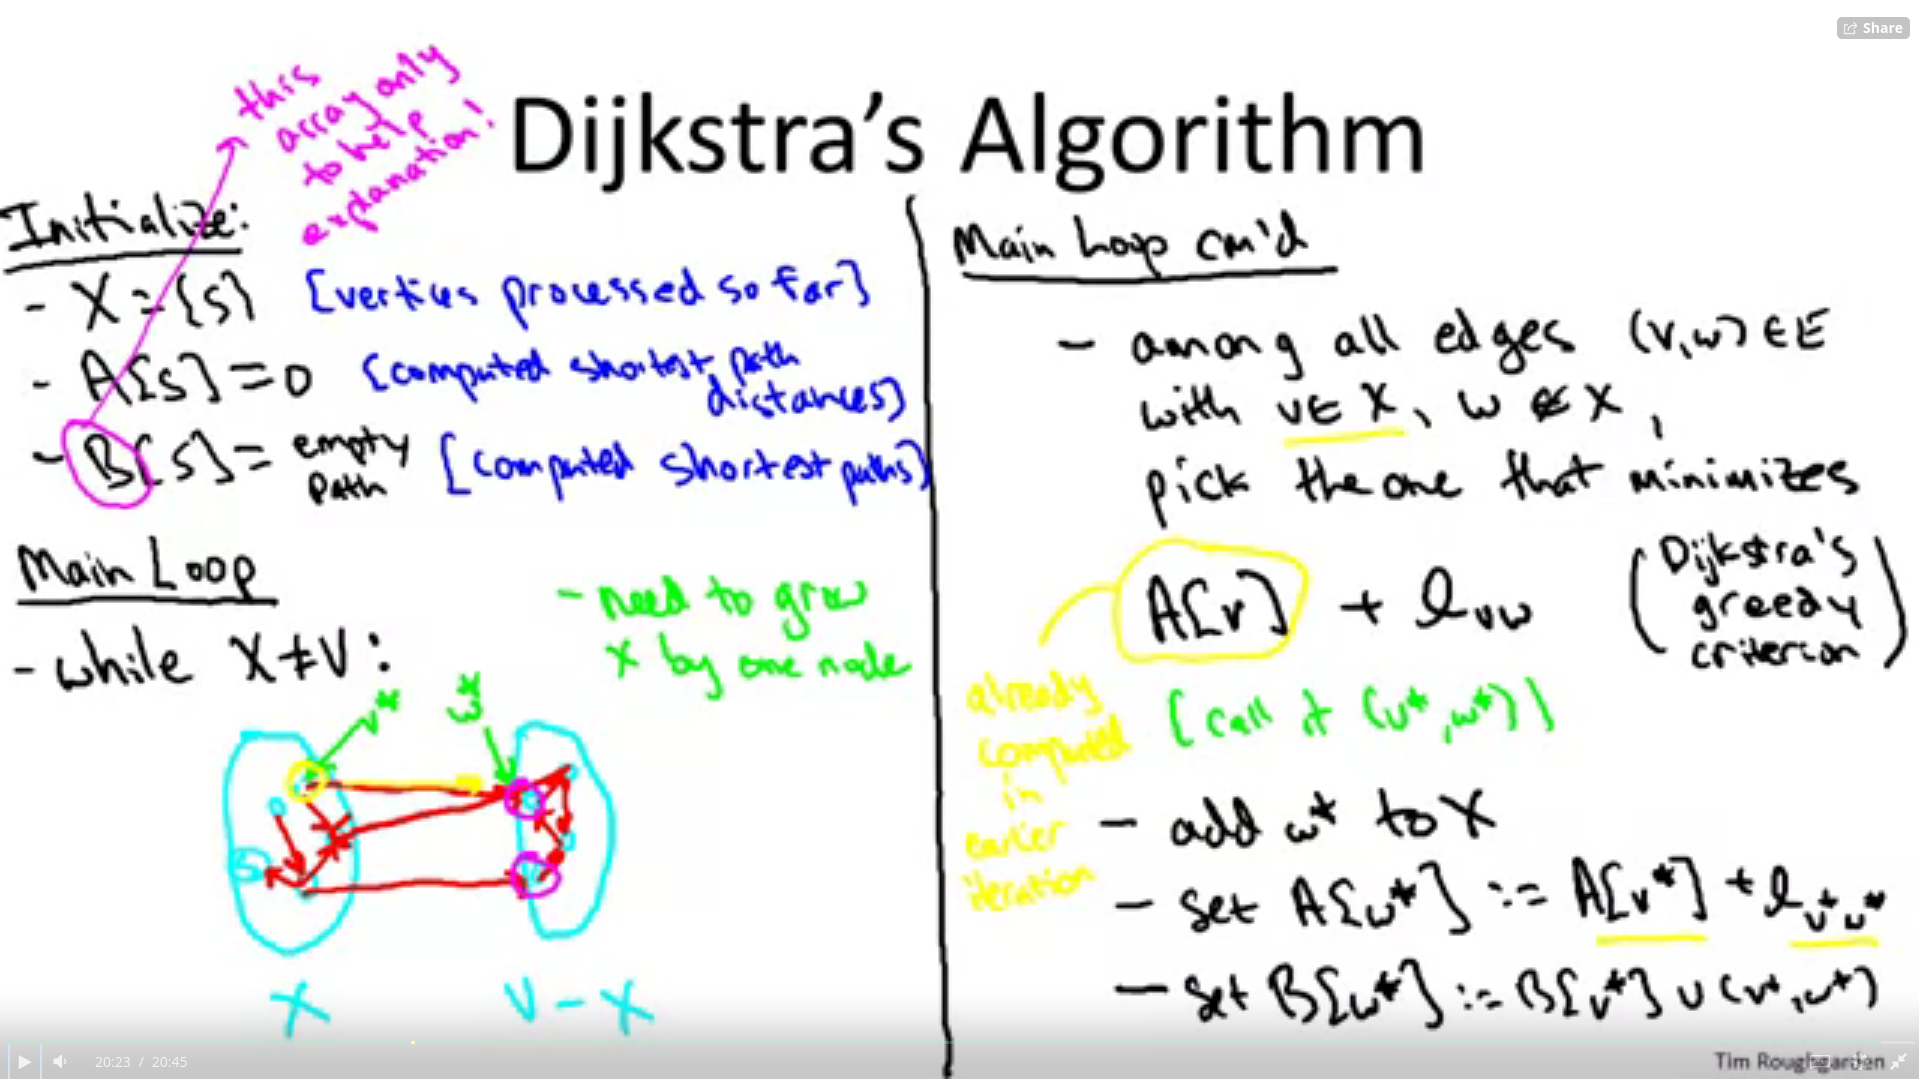 Share
this
array only
to help
explanation!
Dijkstra's Algorithm
Initialize:
- X = {s} [vertices processed so far]
- A[s] = 0 [computed shortest path
distances]
- B[s] = empty
path [computed shortest paths]
Main Loop
- while X ≠ V:
- need to grow
X by one node
v*
w*
S
X
V - X
Main Loop cn'd
- among all edges (v,w) ∈ E
with v ∈ X, w ∉ X,
pick the one that minimizes
A[v] + l_vw
(Dijkstra's
greedy
criterion)
already
computed
in
earlier
iteration
[call it (v*,w*)]
- add w* to X
- set A[w*] := A[v*] + l_v*w*
- set B[w*] := B[v*] ∪ (v*,w*)
20:23 / 20:45
Tim Roughgarden